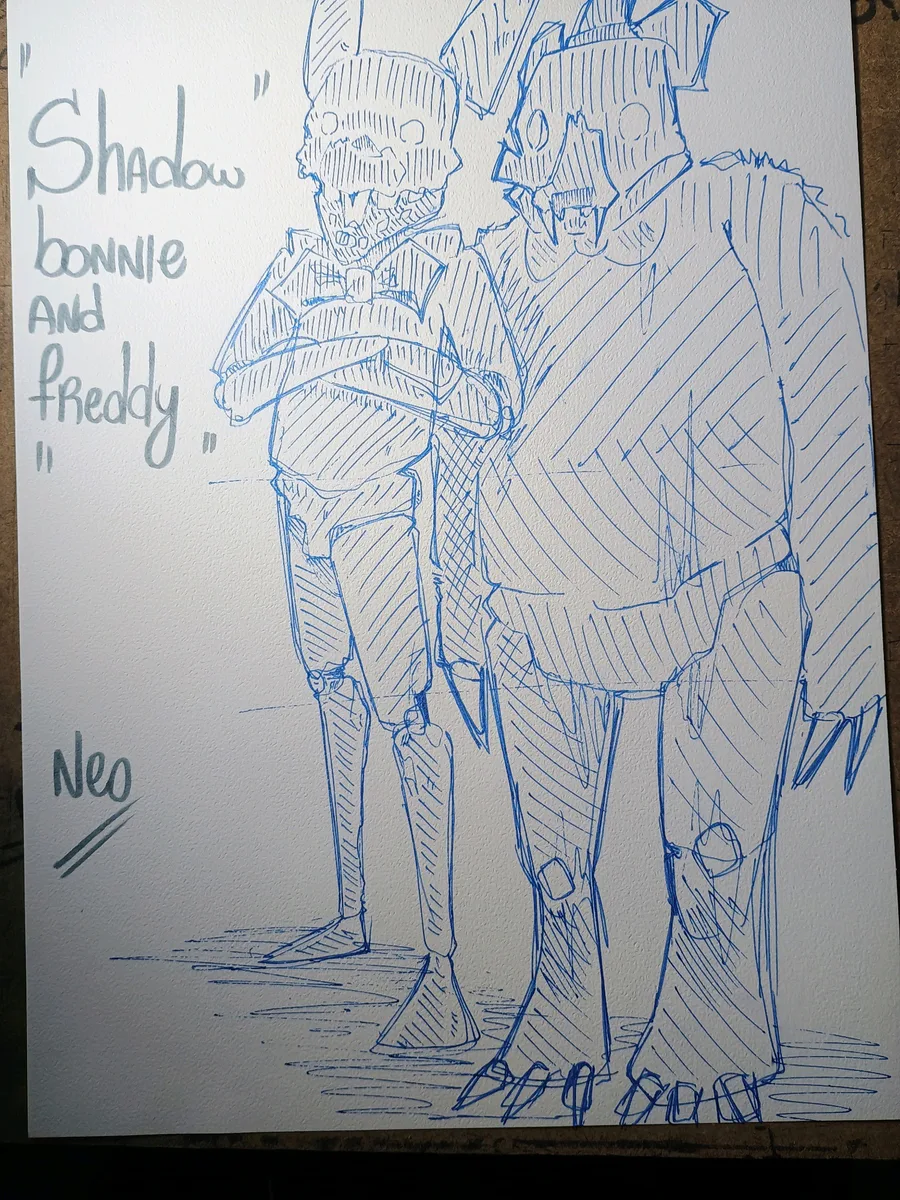 "
"
Shadow
bonnie
And
freddy
"
"
Neo